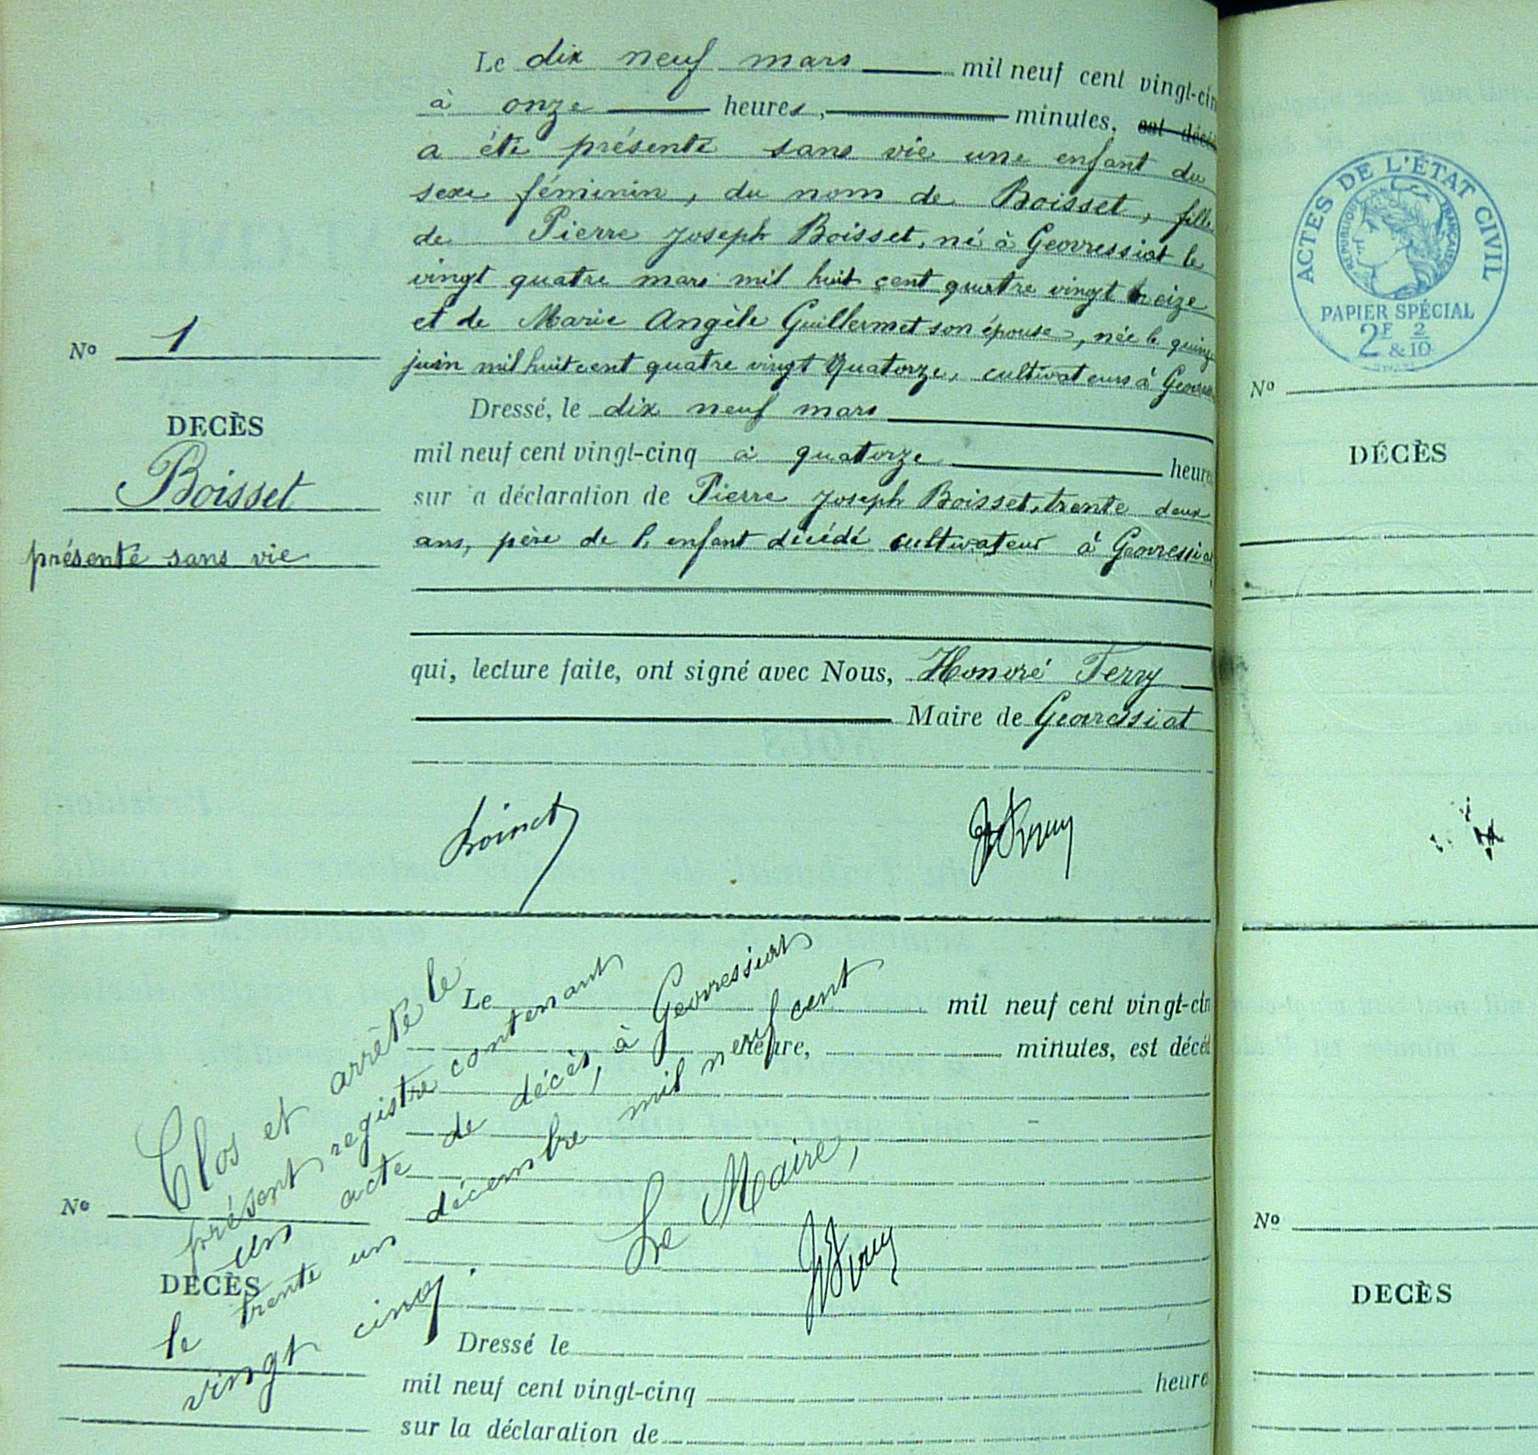 Le dix neuf mars mil neuf cent vingt-cin
à onze heures, minutes, est décé
a été présenté sans vie une enfant du
sexe féminin, du nom de Boisset, fille
de Pierre Joseph Boisset, né à Geovressiat le
vingt quatre mars mil huit cent quatre vingt treize
et de Marie Angèle Guillermet son épouse, née le quinze
juin mil huit cent quatre vingt Quatorze, cultivateurs à Geovres
Nº 1
DECÈS
Boisset
présenté sans vie
Dressé, le dix neuf mars
mil neuf cent vingt-cinq à quatorze heures
sur la déclaration de Pierre Joseph Boisset, trente deux
ans, père de l'enfant décédé cultivateur à Geovressiat
qui, lecture faite, ont signé avec Nous, Honoré Ferry
Maire de Geovressiat
Le mil neuf cent vingt-cin
heure, minutes, est décéd
Nº
DECÈS
Clos et arrêté le
présent registre contenant
un acte de décès, à Geovressiat
le trente un décembre mil neuf cent
vingt cinq.
Le Maire,
Dressé le
mil neuf cent vingt-cinq heure
sur la déclaration de
ACTES DE L'ÉTAT CIVIL
RÉPUBLIQUE FRANÇAISE
PAPIER SPÉCIAL
2F & 2/10
Nº
DÉCÈS
Nº
DECÈS